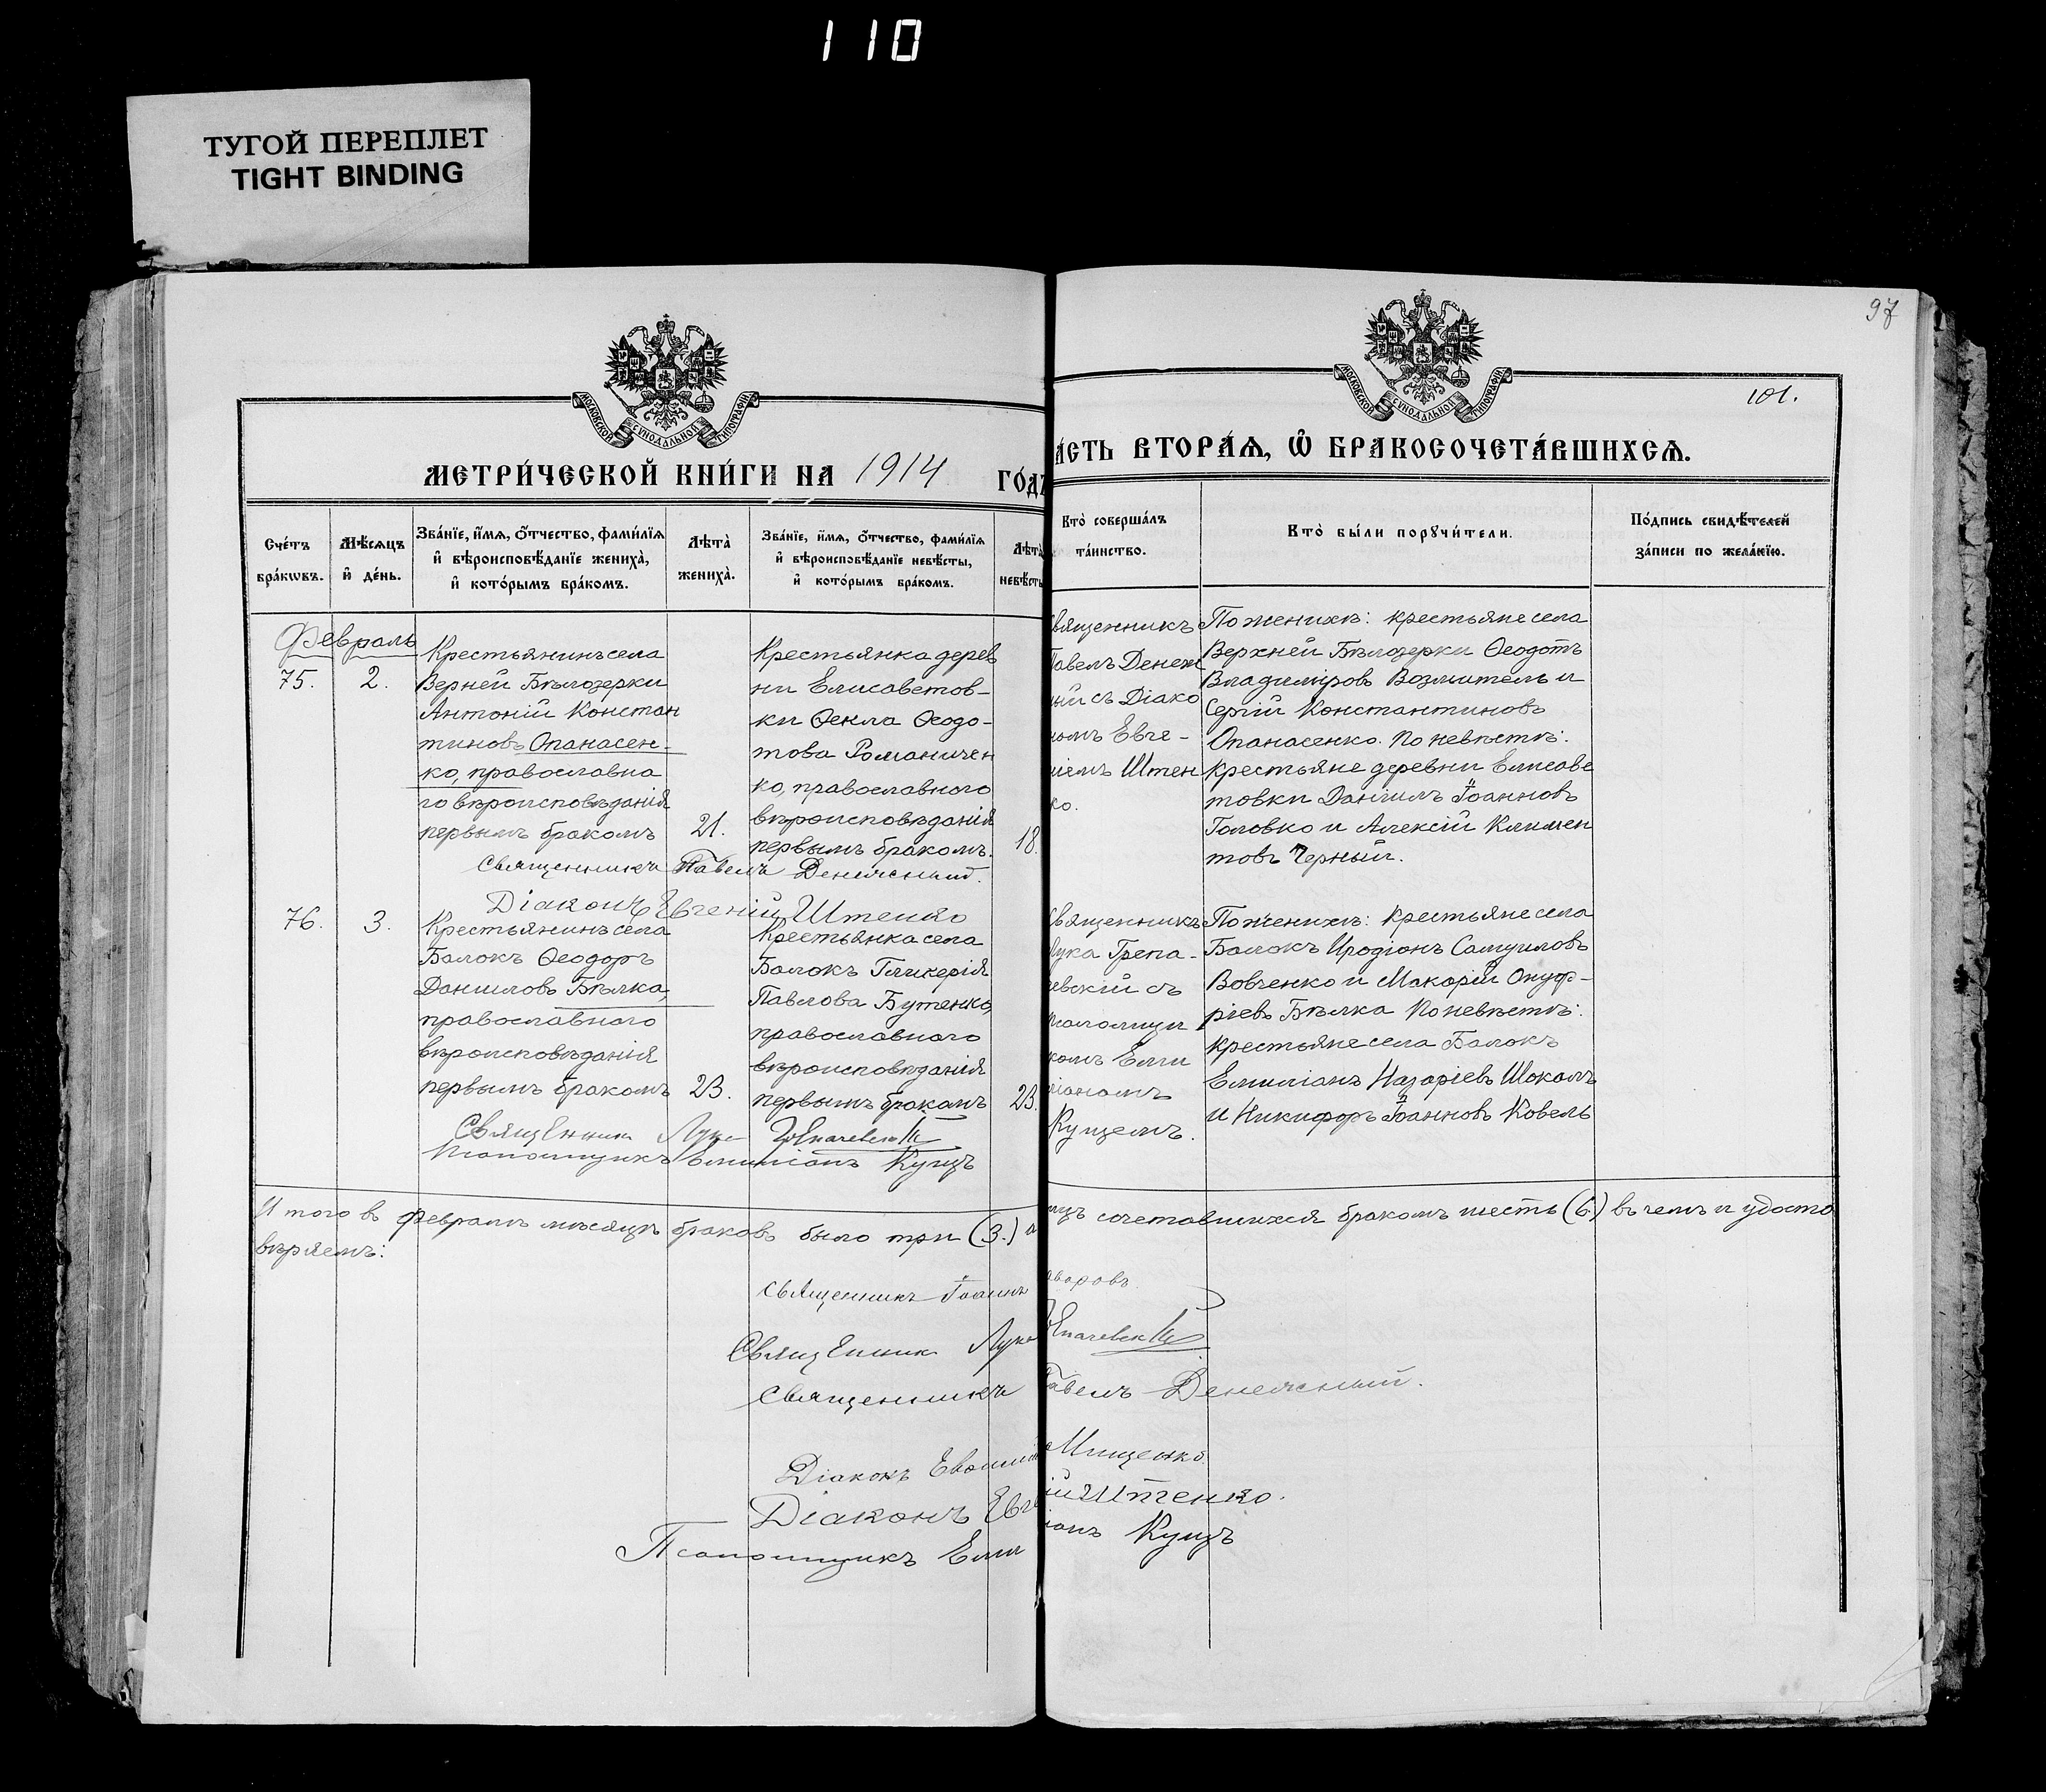 110
ТУГОЙ ПЕРЕПЛЕТ
TIGHT BINDING
97
101.
МОСКОВСКОЙ СѴНОДАЛЬНОЙ ТИПОГРАФІИ
МОСКОВСКОЙ СѴНОДАЛЬНОЙ ТИПОГРАФІИ
МЕТРИ́ЧЕСКОЙ КНИ́ГИ НА 1914 ГО́ДЪ
А́СТЬ ВТОРА́Я, Ѡ҆ БРАКОСОЧЕТА́ВШИХСЯ.
Сче́тъ
бра́кѡвъ.
Мѣ́сяцъ
и҆ де́нь.
Зва́нїе, и҆́мя, ѻ҆́тчество, фами́лїя
и҆ вѣроисповѣ́данїе жениха̀,
и҆ кото́рымъ бра́комъ.
Лѣта̀
жениха̀.
Зва́нїе, и҆́мя, ѻ҆́тчество, фами́лїя
и҆ вѣроисповѣ́данїе невѣ́сты,
и҆ кото́рымъ бра́комъ.
Лѣта̀
невѣ́сты
Кто̀ соверша́лъ
та́инство.
Кто̀ бы́ли порꙋчи́тели.
По́дпись свидѣ́телей
за́писи по жела́нїю.
Февраль
75.
2.
Крестьянинъ села
Верней Бѣлозерки
Антоній Констан
тиновъ Опанасен-
ко, православна
го вѣроисповѣданія
первымъ бракомъ
21.
Крестьянка дерев
ни Елисаветов-
ки Ѳекла Ѳеодо-
това Романичен
ко, православного
вѣроисповѣданія
первымъ бракомъ.
18.
вященникъ
Павелъ Денеж
ный съ Діако
номъ Евге-
ніемъ Штен
ко.
По женихѣ: крестьяне села
Верхней Бѣлозерки Ѳеодотъ
Владиміровъ Возмитель и
Сергій Константиновъ
Опанасенко. По невѣстѣ:
крестьяне деревни Елисаве
товки Даніилъ Іоанновъ
Головко и Алексій Климен
товъ Черный.
Священникъ Павелъ Денежный.
Діаконъ Евгеній Штенко
76.
3.
Крестьянинъ села
Балокъ Ѳеодоръ
Даниловъ Бѣлка,
православного
вѣроисповѣданія
первымъ бракомъ
23.
Крестьянка села
Балокъ Гликерія
Павлова Бутенко,
православного
вѣроисповѣданія
первымъ бракомъ
23.
Священникъ
Лука Грепа-
чевскій съ
псаломщи
комъ Еми
ліаномъ
Кунцемъ.
По женихѣ: крестьяне села
Балокъ Иродіонъ Самуиловъ
Вовченко и Макарій Онуф-
ріевъ Бѣлка По невѣстѣ:
крестьяне села Балокъ
Емиліанъ Назаріевъ Шокалъ
и Никифоръ Іоанновъ Ковель
Священник Лука
Псаломщикъ Емиліанъ Кунцъ
Итого въ февралѣ мѣсяцѣ браковъ было три (3.) а
ицъ сочетавшихся бракомъ шесть (6.) въ чемъ и удосто
вѣряемъ:
Священникъ Іоаннъ
оваровъ
Священник Лука
Священникъ
Павелъ Денежный.
Діаконъ
Мищенко
Діаконъ Евге
ній Штенко.
Псаломщикъ Еми
ліанъ Кунцъ